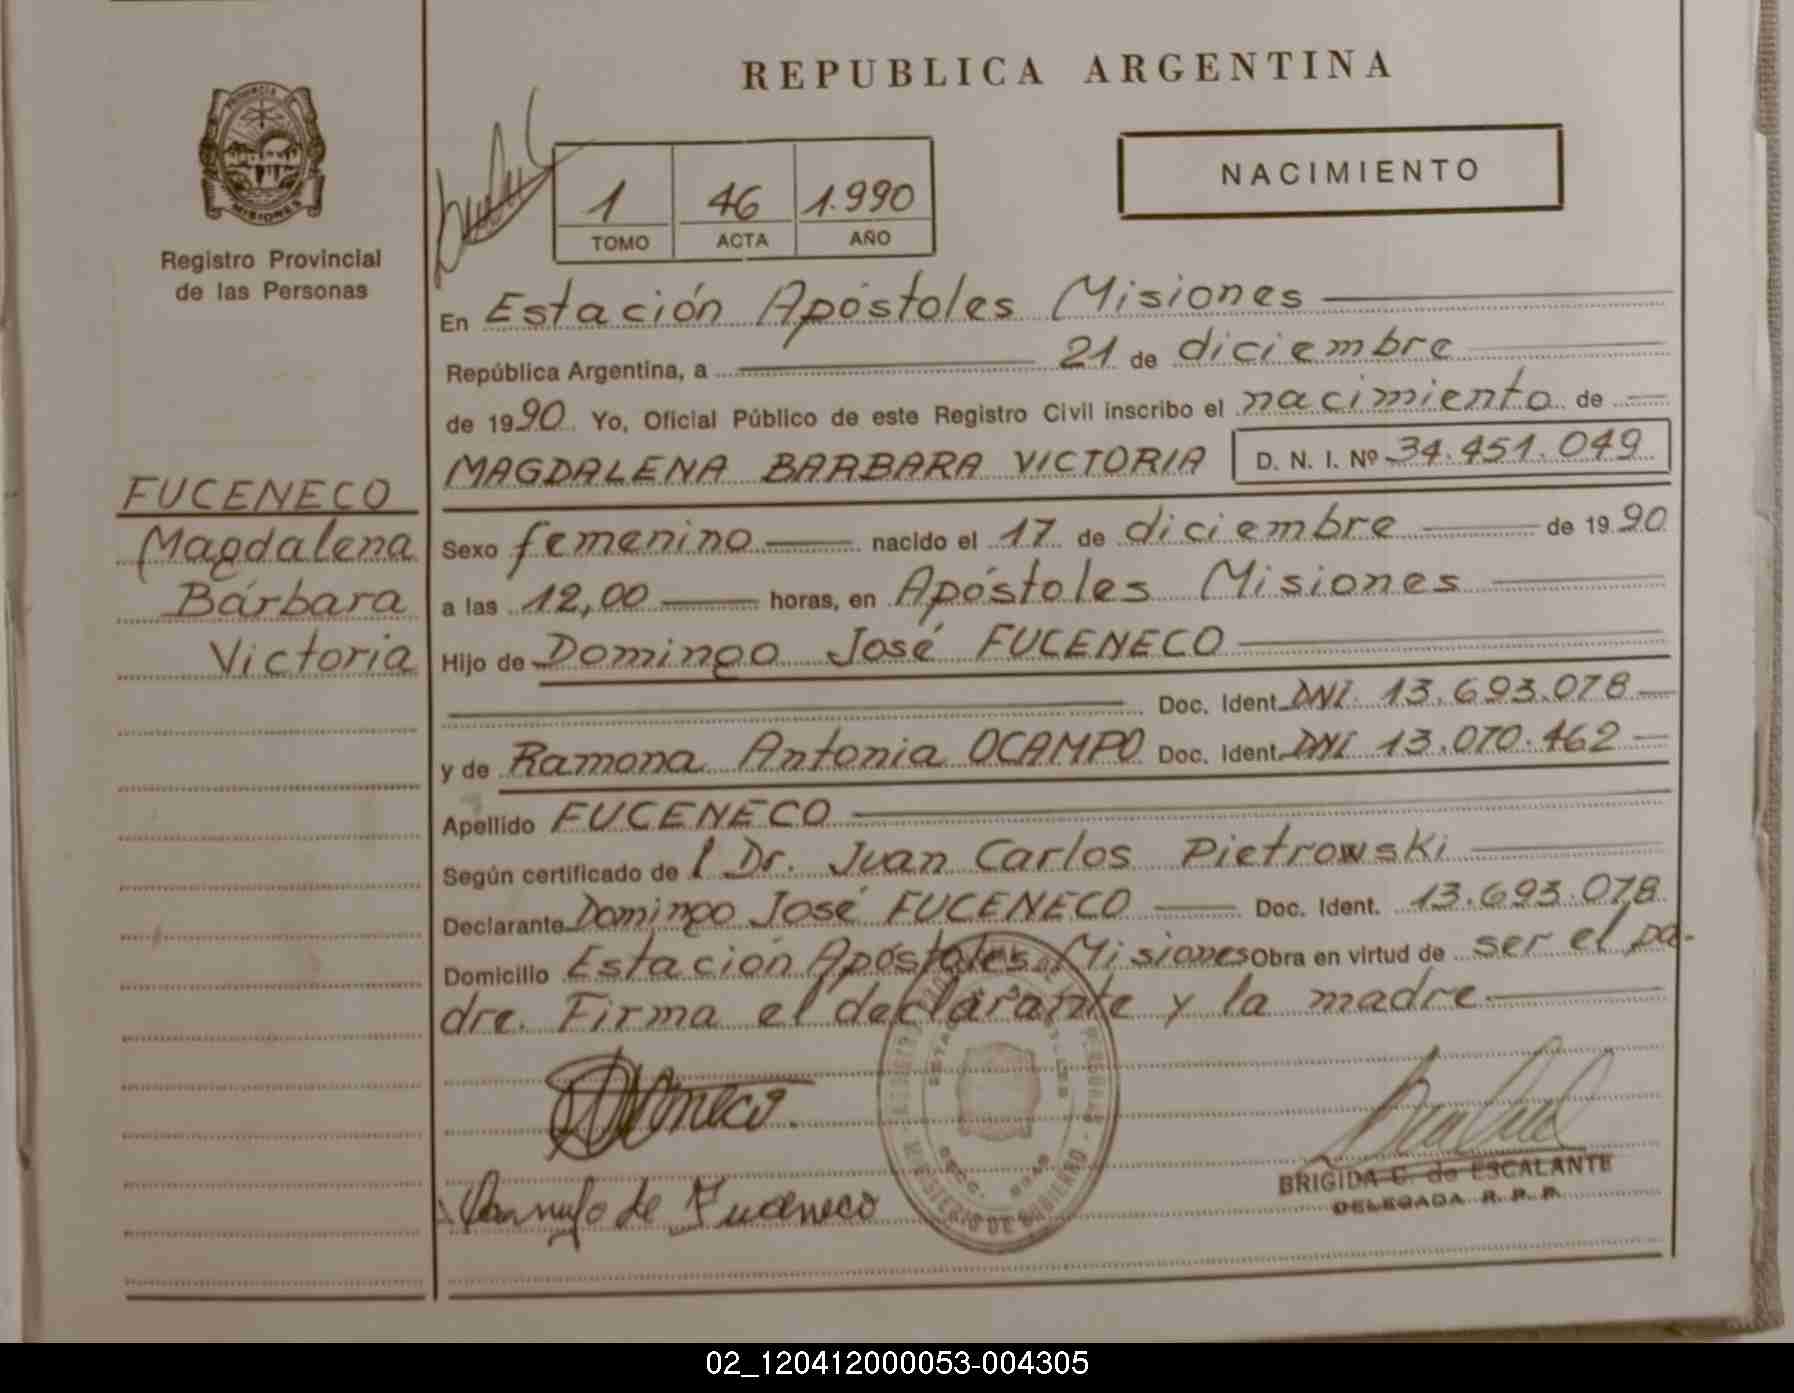 REPUBLICA ARGENTINA
PROVINCIA DE
MISIONES
Registro Provincial
de las Personas
NACIMIENTO
1 46 1.990
TOMO ACTA AÑO
En Estación Apóstoles Misiones
República Argentina, a 21 de diciembre
de 1990 Yo, Oficial Público de este Registro Civil inscribo el nacimiento de
MAGDALENA BARBARA VICTORIA D. N. I. Nº 34.451.049
FUCENECO
Magdalena
Bárbara
Victoria
Sexo femenino nacido el 17 de diciembre de 1990
a las 12,00 horas, en Apóstoles Misiones
Hijo de Domingo José FUCENECO
Doc. Ident. DNI. 13.693.078
y de Ramona Antonia OCAMPO Doc. Ident. DNI 13.070.462
Apellido FUCENECO
Según certificado de l Dr. Juan Carlos Pietrowski
Declarante Domingo José FUCENECO Doc. Ident. 13.693.078
Domicilio Estación Apóstoles Misiones Obra en virtud de ser el pa-
dre. Firma el declarante y la madre
de Fuceneco
MINISTERIO DE GOBIERNO
BRIGIDA C. de ESCALANTE
DELEGADA R. P. P.
02_120412000053-004305